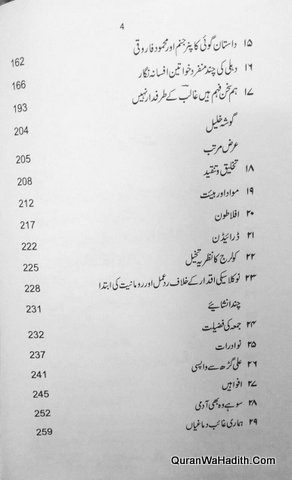 4
۱۵ داستان گوئی کا پنر جنم اور محمود فاروقی 162
۱۶ دہلی کی چند منفرد خواتین افسانہ نگار 166
۱۷ ہم سخن فہم ہیں غالب کے طرفدار نہیں 193
گوشہ خلیل 204
عرض مرتب 205
۱۸ تخلیق و تنقید 208
۱۹ مواد اور ہیئت 212
۲۰ افلاطون 217
۲۱ ڈرائیڈن 222
۲۲ کولرج کا نظریہ تخیل 225
۲۳ نوکلاسیکی اقدار کے خلاف ردعمل اور رومانیت کی ابتدا 228
چند انشائیے 231
۲۴ جمعہ کی فضیلت 232
۲۵ نوادرات 237
۲۶ علی گڑھ سے واپسی 241
۲۷ افواہیں 245
۲۸ سو ہے وہ بھی آدمی 252
۲۹ ہماری غائب دماغیاں 259
QuranWaHadith.Com